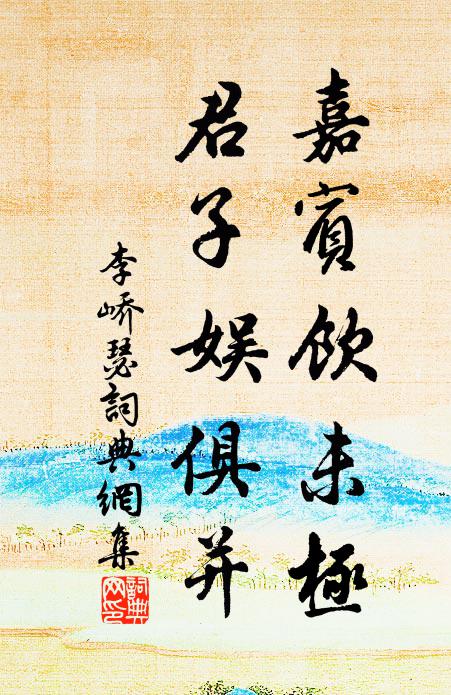 嘉賓飲未極
君子娛俱并
李嶠瑟詞典網集
詞典